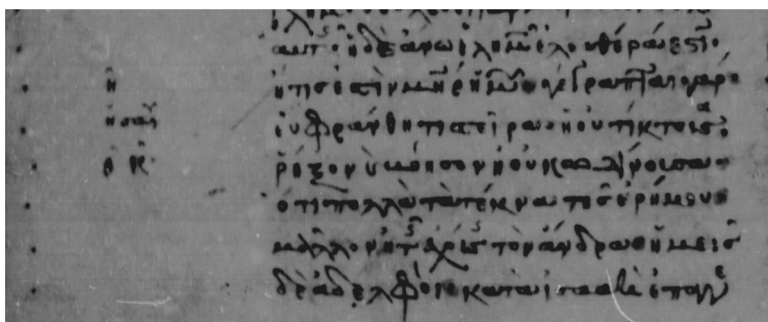 αὐτῆς ἡ δὲ ἄνω ἰλημ ἐλευθέρα ἐστὶ
ἥτις ἐστὶν μηρ ἡμῶν γέγραπται γάρ
ησαΐ
εὐφράνθητι στεῖρα ἡ οὐ τίκτουσα·
ῥῆξον καὶ βόησον ἡ οὐκ ὠδίνουσα·
ὅτι πολλὰ τὰ τέκνα τῆς ἐρήμου
μᾶλλον ἢ τῆς ἐχούσης τὸν ἄνδρα ἡμεῖς
δὲ ἀδελφοὶ κατὰ ἰσαὰκ ἐπαγγε